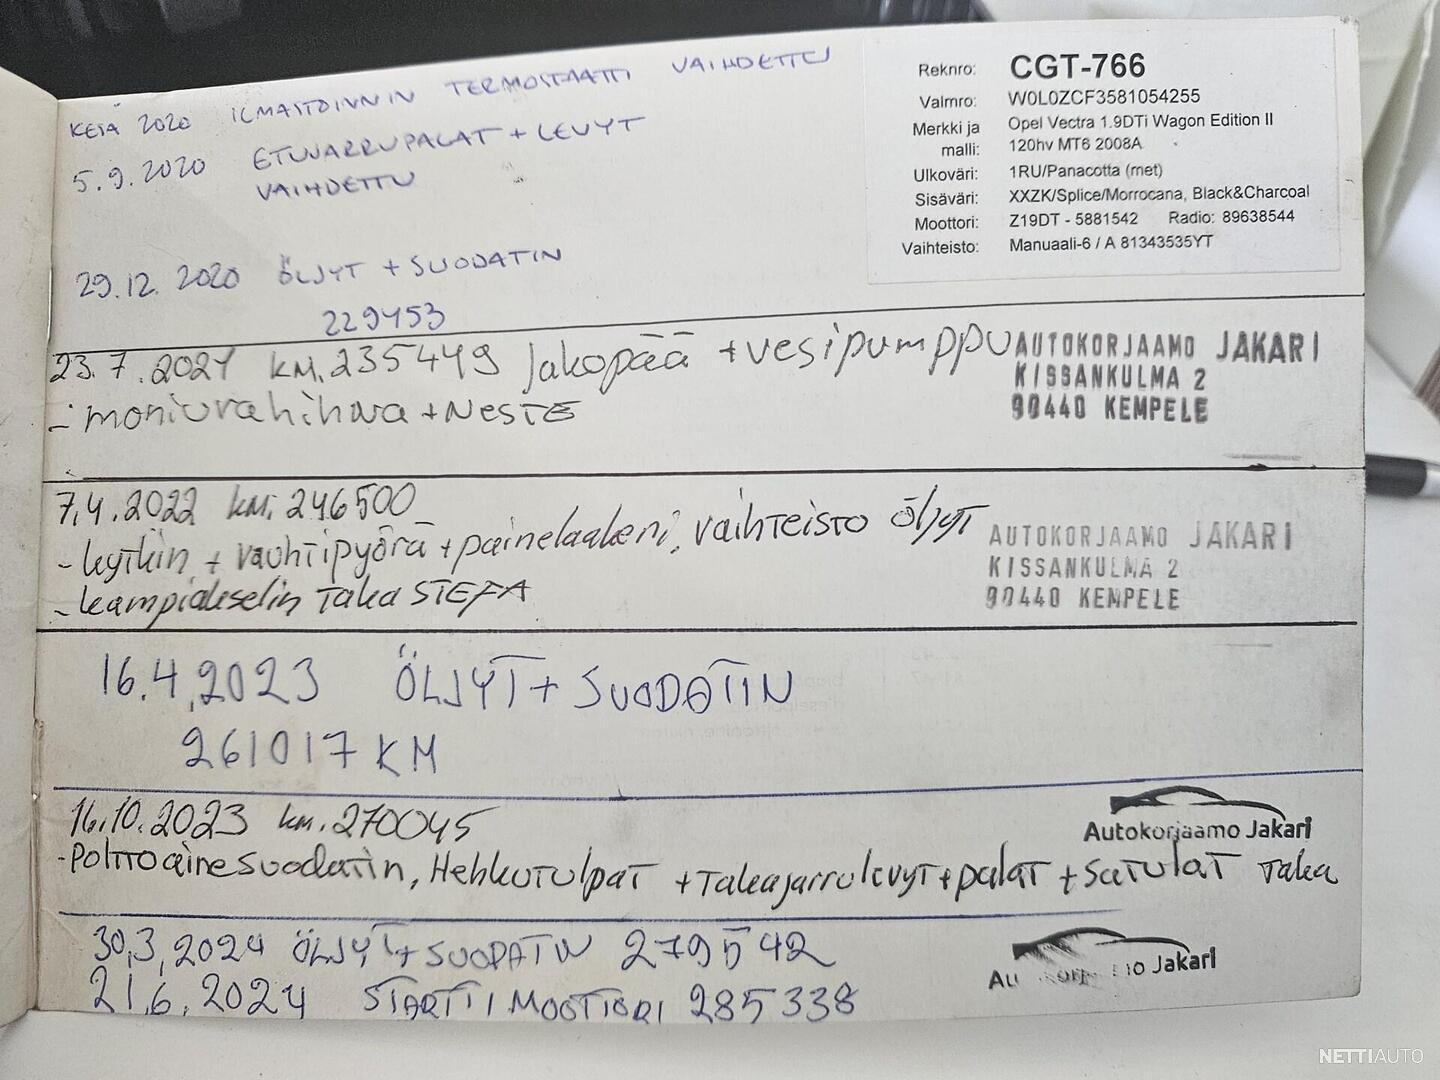 KESÄ 2020 ILMASTOINNIN TERMOSTAATTI VAIHDETTU
5.9.2020 ETUJARRUPALAT + LEVYT
VAIHDETTU
29.12.2020 ÖLJYT + SUODATIN
229453
Reknro: CGT-766
Valmro: W0L0ZCF3581054255
Merkki ja malli: Opel Vectra 1.9DTi Wagon Edition II
120hv MT6 2008A
Ulkoväri: 1RU/Panacotta (met)
Sisäväri: XXZK/Splice/Morrocana, Black&Charcoal
Moottori: Z19DT - 5881542 Radio: 89638544
Vaihteisto: Manuaali-6 / A 81343535YT
23.7.2021 km.235449 Jakopää + vesipumppu
- moniurahihna + NESTE
AUTOKORJAAMO JAKARI
KISSANKULMA 2
90440 KEMPELE
7.4.2022 km.246500
- kytkin + vauhtipyörä + painelaakeri, vaihteisto öljyt
- kampiakselin taka STEFA
AUTOKORJAAMO JAKARI
KISSANKULMA 2
90440 KEMPELE
16.4.2023 ÖLJYT + SUODATIN
261017 KM
16.10.2023 km.270045
- Polttoainesuodatin, Hehkutulpat + Takajarrulevyt + palat + satulat taka
Autokorjaamo Jakari
30.3.2024 ÖLJYT + SUODATIN 279542
21.6.2024 STARTTIMOOTTORI 285338
Jakari
NETTIAUTO